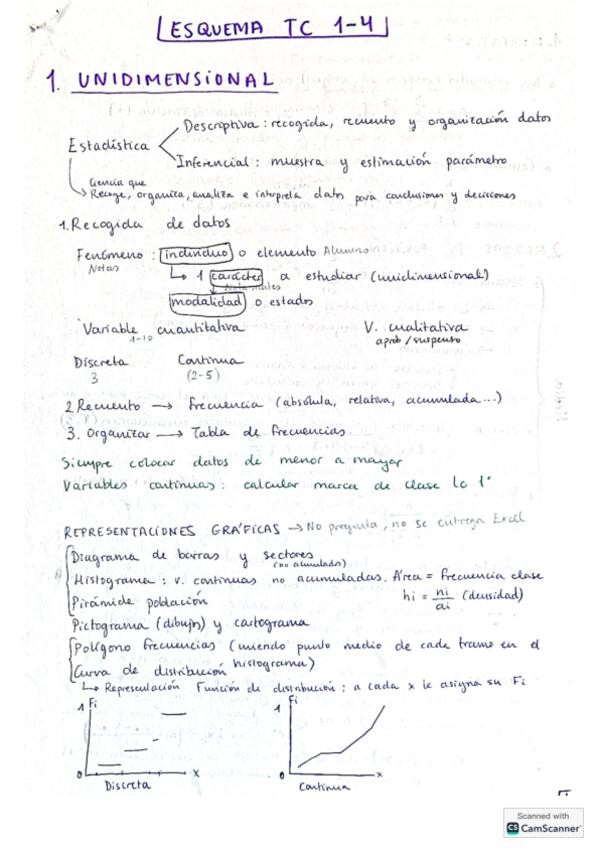 ESQUEMA TC 1-4
1. UNIDIMENSIONAL
Estadística
Descriptiva: recogida, recuento y organización datos
Inferencial: muestra y estimación parámetro
Ciencia que
Recoge, organiza, analiza e interpreta datos para conclusiones y decisiones
1. Recogida de datos
Fenómeno: individuo o elemento Alumno
Notas
1 carácter a estudiar (unidimensional)
modalidad o estados
Variable cuantitativa V. cualitativa
1-10 aprob/suspenso
Discreta Continua
3 (2-5)
2 Recuento → frecuencia (absoluta, relativa, acumulada...)
3. Organizar → Tabla de frecuencias
Siempre colocar datos de menor a mayor
Variables continuas: calcular marca de clase lo 1º
REPRESENTACIONES GRÁFICAS → No pregunta, no se entrega Excel
Diagrama de barras y sectores
(no acumulado)
Histograma: v. continuas no acumuladas. Área = frecuencia clase
Pirámide población hi = ni/ai (densidad)
Pictograma (dibujo) y cartograma
Polígono frecuencias (uniendo punto medio de cada tramo en el
histograma)
Curva de distribución
↳ Representación Función de distribución: a cada x le asigna su Fi
1 Fi 1 Fi
0 x 0 x
Discreta Continua
Scanned with
CS CamScanner